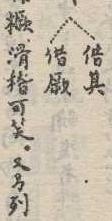 借具
借厥
撅滑稽可笑。又另列